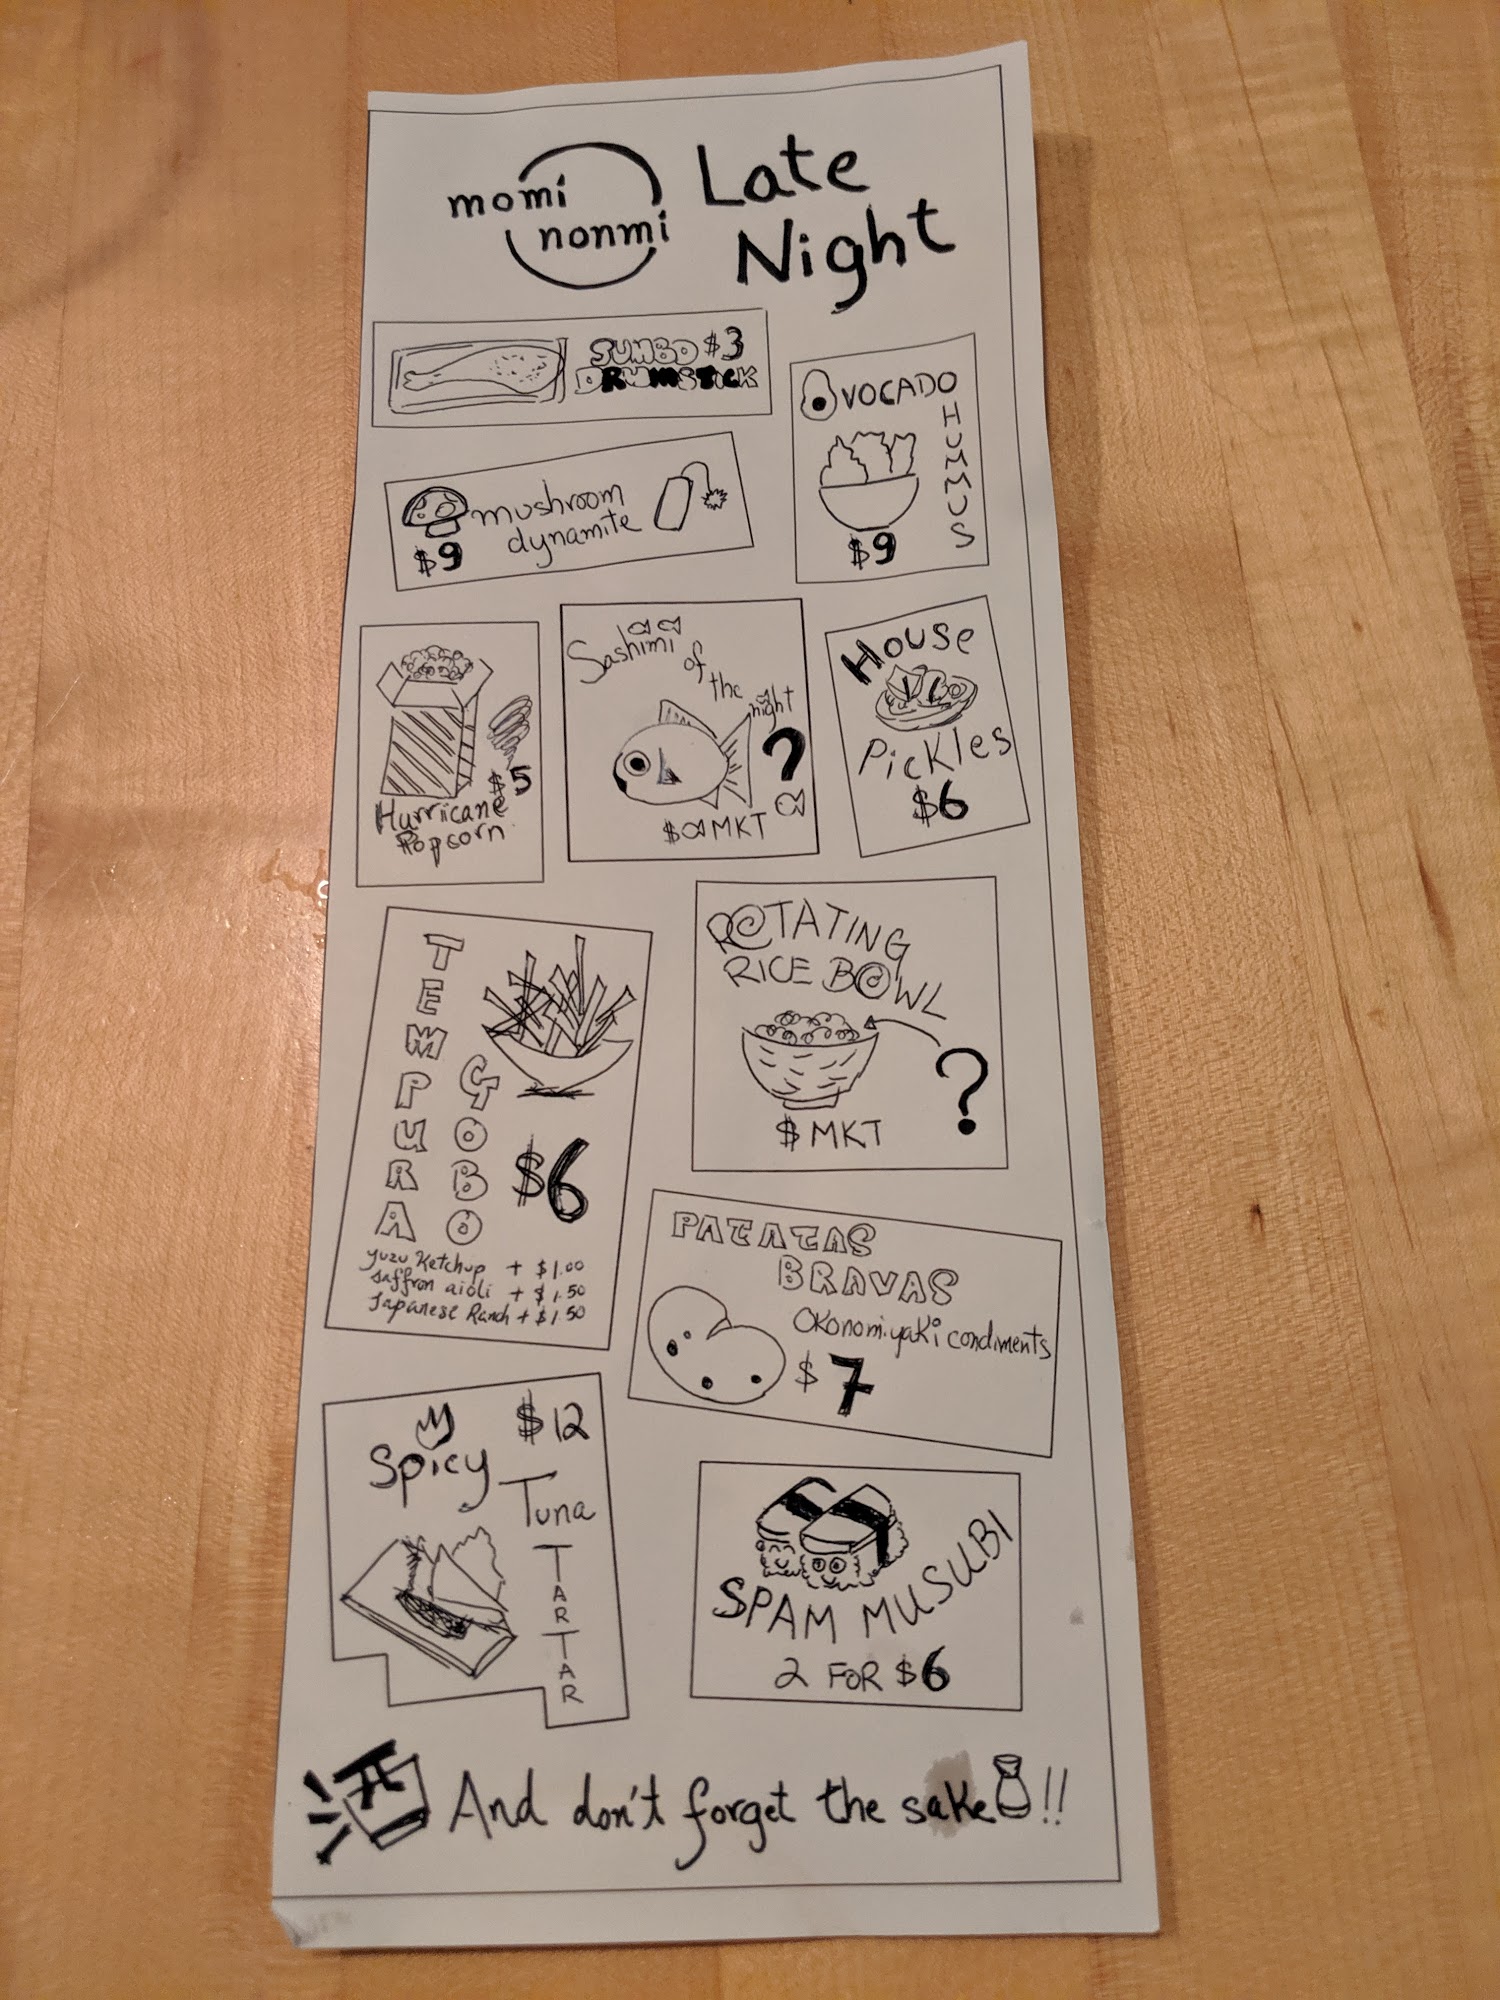 momi
nonmi
Late
Night
SUMBO $3
DRUMSTICK
AVOCADO
HUMMUS
$9
mushroom
dynamite
$9
Hurricane
Popcorn
$5
Sashimi
of
the
night
?
$ MKT
House
Pickles
$6
TEMPURA
GOBO
$6
yuzu Ketchup + $1.00
saffron aioli + $1.50
Japanese Ranch + $1.50
ROTATING
RICE BOWL
?
$ MKT
PATATAS
BRAVAS
Okonomiyaki condiments
$7
Spicy
$12
Tuna
TARTAR
SPAM MUSUBI
2 FOR $6
And don't forget the sake!!